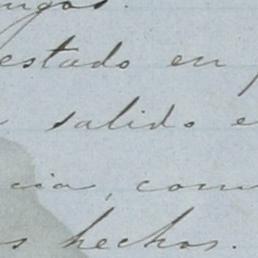 estado en
salido e
cia, com
s hechos.